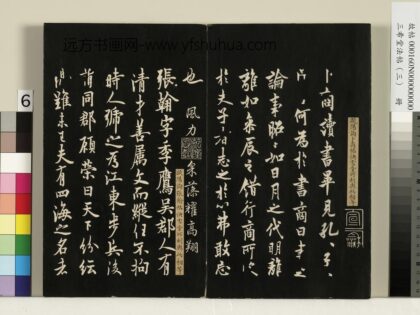 卜商讀書畢見孔子
何為於書商曰書之
論事昭昭如日月之代明離
離如參辰之錯行商所
於夫子者志之於心弗敢忘
也
張翰字季鷹吳郡人有
清才善屬文而縱任不拘
時人號之為江東步兵後
謂同郡顧榮曰天下紛紜
難未已夫有四海之名者
远方书画网-www.yfshuhua.com
6
故帖 000160N00000000
三希堂法帖（三） 册